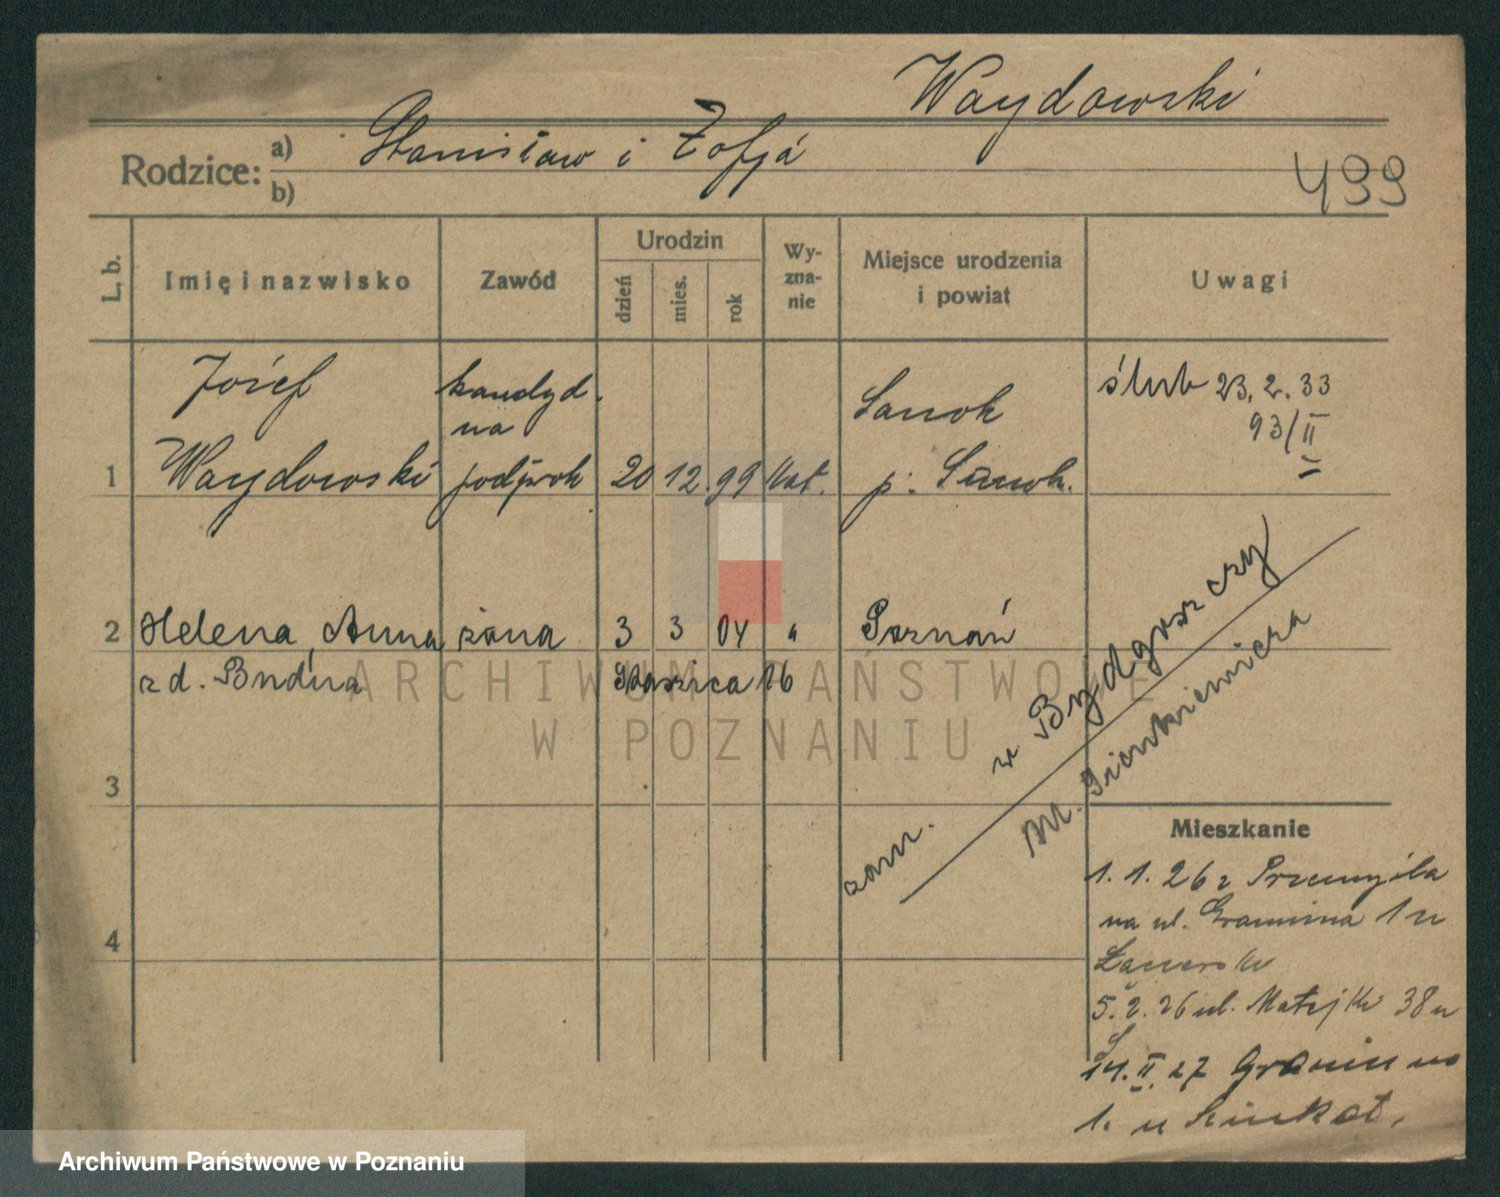 Waydowski
Rodzice: a) Stanisław i Zofja
b)
499
L. b.
Imię i nazwisko
Zawód
Urodzin
dzień
mies.
rok
Wy-
zna-
nie
Miejsce urodzenia
i powiat
Uwagi
Józef
Waydowski
kandyd.
na
podprok
1
20 12. 99 kat.
Sanok
p. Sanok.
ślub 23. 2. 33
93/II
2 Helena, Anna żona 3 3 04 " Poznań
z d. Budna
Staszica 16
zam. w Bydgoszczy
Al. Sienkiewicza
3
4
Mieszkanie
1. 1. 26 z Przemyśla
na ul. Graniczna 1 u
5. 2. 26 ul. Matejki 38 u
S
14. II. 27
1. u
ARCHIWUM PAŃSTWOWE
W POZNANIU
Archiwum Państwowe w Poznaniu